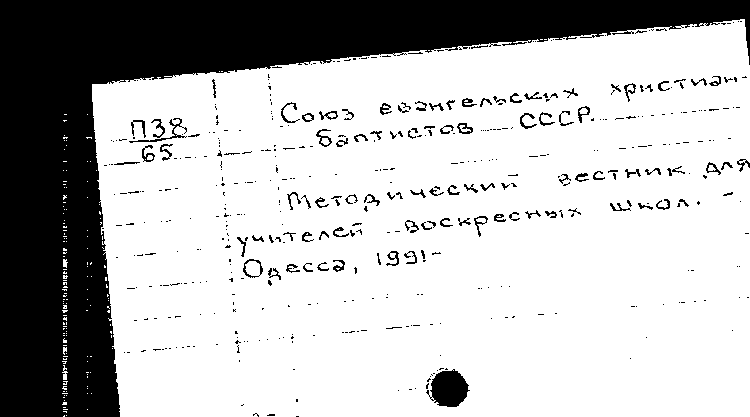 П38
65
Союз евангельских христиан-
баптистов СССР.
Методический вестник для
учителей воскресных школ. -
Одесса, 1991-